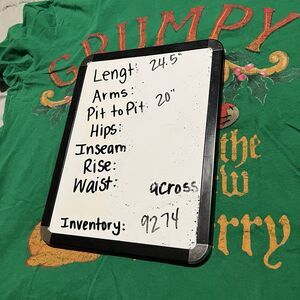 GRUMPY
Lengt: 24.5"
Arms:
Pit to Pit 20"
Hips:
Inseam
Rise:
Waist: across
Inventory: 9274
the
rry